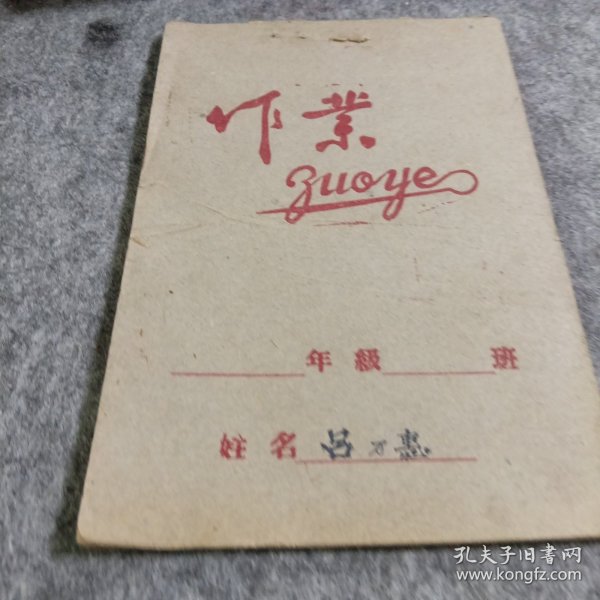 作業
zuoye
年級 班
姓名 吕万惠
孔夫子旧书网
www.kongfz.com